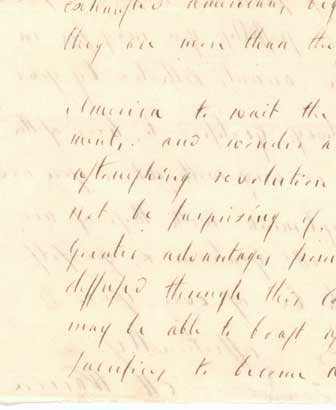 exchanged American
they are more than the
America to wait the
ments. and wonder a
astonishing revolution
not be surprising if
Greater advantages
diffused through this
may be able to boast
sacrifices to become a